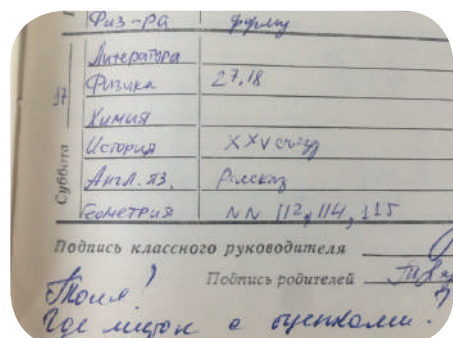 Физ-ра форму
Литература
Физика 27,18
17
Химия
История XXV съезд
Суббота
Англ. яз. Рассказ
Геометрия NN 112, 114, 115
Подпись классного руководителя
Подпись родителей
Толя!
Где листок с оценками?